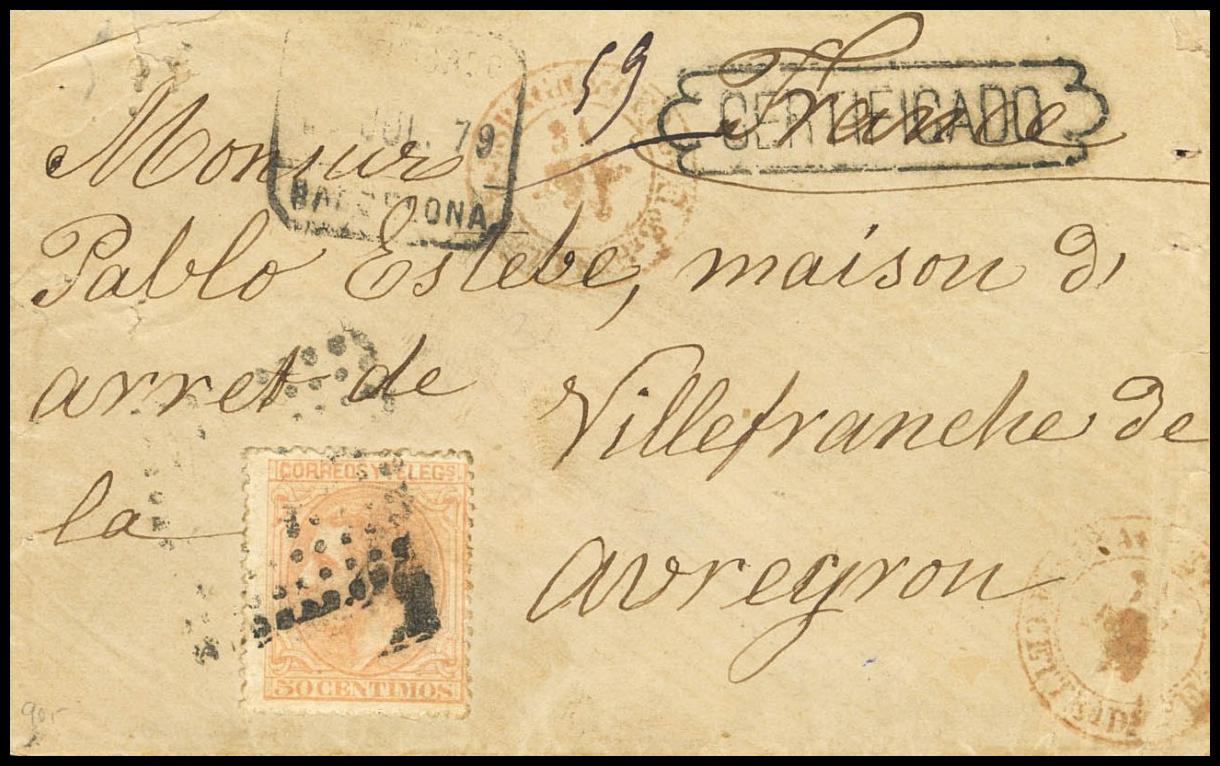 59 France
CERTIFICADO
JUL. 79
BARCELONA
Monsiur
Pablo Estebe, maison d'
arret de Villefranche de
la avreyron
CORREOS Y TELEGS
50 CENTIMOS
1
90,-